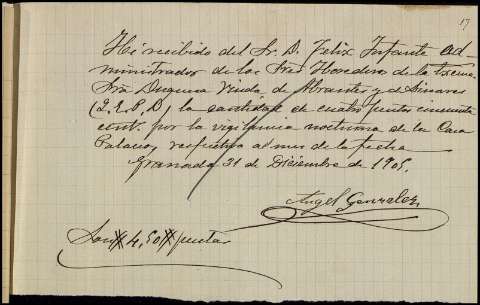 17
He recibido del Sr. D. Felix Infante ad-
ministrador de los Sres Herederos de la Excma
Sra Duquesa Viuda de Abrantes y de Linares
(Q.E.P.D) la cantidad de cuatro pesetas cincuenta
cent. por la vigilancia nocturna de la Casa
Palacio, respectiva al mes de la fecha
Granada 31 de Diciembre de 1905.
Angel Gonzalez
Son 4,50 pesetas